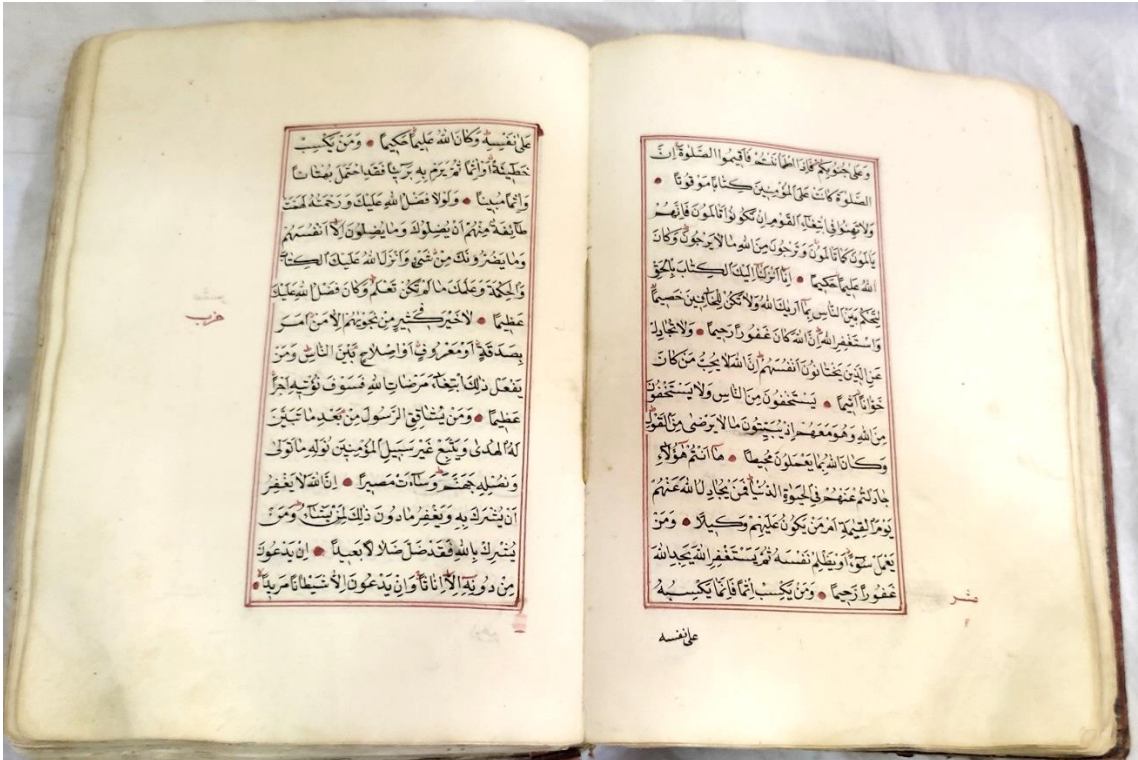 وَعَلَى جُنُوبِكُمْ فَاِذَا اطْمَأْنَنْتُمْ فَاَقِيمُوا الصَّلٰوةَ اِنَّ
الصَّلٰوةَ كَانَتْ عَلَى الْمُؤْمِنِينَ كِتَابًا مَوْقُوتًا
وَلَا تَهِنُوا فِي ابْتِغَاءِ الْقَوْمِ اِنْ تَكُونُوا تَأْلَمُونَ فَاِنَّهُمْ
يَأْلَمُونَ كَمَا تَأْلَمُونَ وَتَرْجُونَ مِنَ اللهِ مَا لَا يَرْجُونَ وَكَانَ
اللهُ عَلِيمًا حَكِيمًا اِنَّا اَنْزَلْنَا اِلَيْكَ الْكِتَابَ بِالْحَقِّ
لِتَحْكُمَ بَيْنَ النَّاسِ بِمَا اَرٰيكَ اللهُ وَلَا تَكُنْ لِلْخَائِنِينَ خَصِيمًا
وَاسْتَغْفِرِ اللهَ اِنَّ اللهَ كَانَ غَفُورًا رَحِيمًا وَلَا تُجَادِلْ
عَنِ الَّذِينَ يَخْتَانُونَ اَنْفُسَهُمْ اِنَّ اللهَ لَا يُحِبُّ مَنْ كَانَ
خَوَّانًا اَثِيمًا يَسْتَخْفُونَ مِنَ النَّاسِ وَلَا يَسْتَخْفُونَ
مِنَ اللهِ وَهُوَ مَعَهُمْ اِذْ يُبَيِّتُونَ مَا لَا يَرْضٰى مِنَ الْقَوْلِ
وَكَانَ اللهُ بِمَا يَعْمَلُونَ مُحِيطًا هَا اَنْتُمْ هٰؤُلَاءِ
جَادَلْتُمْ عَنْهُمْ فِي الْحَيٰوةِ الدُّنْيَا فَمَنْ يُجَادِلُ اللهَ عَنْهُمْ
يَوْمَ الْقِيٰمَةِ اَمْ مَنْ يَكُونُ عَلَيْهِمْ وَكِيلًا وَمَنْ
يَعْمَلْ سُوءًا اَوْ يَظْلِمْ نَفْسَهُ ثُمَّ يَسْتَغْفِرِ اللهَ يَجِدِ اللهَ
غَفُورًا رَحِيمًا وَمَنْ يَكْسِبْ اِثْمًا فَاِنَّمَا يَكْسِبُهُ
عشر
على نفسه
عَلٰى نَفْسِهِ وَكَانَ اللهُ عَلِيمًا حَكِيمًا وَمَنْ يَكْسِبْ
خَطِيئَةً اَوْ اِثْمًا ثُمَّ يَرْمِ بِهِ بَرِيئًا فَقَدِ احْتَمَلَ بُهْتَانًا
وَاِثْمًا مُبِينًا وَلَوْلَا فَضْلُ اللهِ عَلَيْكَ وَرَحْمَتُهُ لَهَمَّتْ
طَائِفَةٌ مِنْهُمْ اَنْ يُضِلُّوكَ وَمَا يُضِلُّونَ اِلَّا اَنْفُسَهُمْ
وَمَا يَضُرُّونَكَ مِنْ شَيْءٍ وَاَنْزَلَ اللهُ عَلَيْكَ الْكِتَابَ
وَالْحِكْمَةَ وَعَلَّمَكَ مَا لَمْ تَكُنْ تَعْلَمُ وَكَانَ فَضْلُ اللهِ عَلَيْكَ
عَظِيمًا لَا خَيْرَ فِي كَثِيرٍ مِنْ نَجْوٰيهُمْ اِلَّا مَنْ اَمَرَ
بِصَدَقَةٍ اَوْ مَعْرُوفٍ اَوْ اِصْلَاحٍ بَيْنَ النَّاسِ وَمَنْ
يَفْعَلْ ذٰلِكَ ابْتِغَاءَ مَرْضَاتِ اللهِ فَسَوْفَ نُؤْتِيهِ اَجْرًا
عَظِيمًا وَمَنْ يُشَاقِقِ الرَّسُولَ مِنْ بَعْدِ مَا تَبَيَّنَ
لَهُ الْهُدٰى وَيَتَّبِعْ غَيْرَ سَبِيلِ الْمُؤْمِنِينَ نُوَلِّهِ مَا تَوَلّٰى
وَنُصْلِهِ جَهَنَّمَ وَسَاءَتْ مَصِيرًا اِنَّ اللهَ لَا يَغْفِرُ
اَنْ يُشْرَكَ بِهِ وَيَغْفِرُ مَا دُونَ ذٰلِكَ لِمَنْ يَشَاءُ وَمَنْ
يُشْرِكْ بِاللهِ فَقَدْ ضَلَّ ضَلَالًا بَعِيدًا اِنْ يَدْعُونَ
مِنْ دُونِهِ اِلَّا اِنَاثًا وَاِنْ يَدْعُونَ اِلَّا شَيْطَانًا مَرِيدًا
حزب